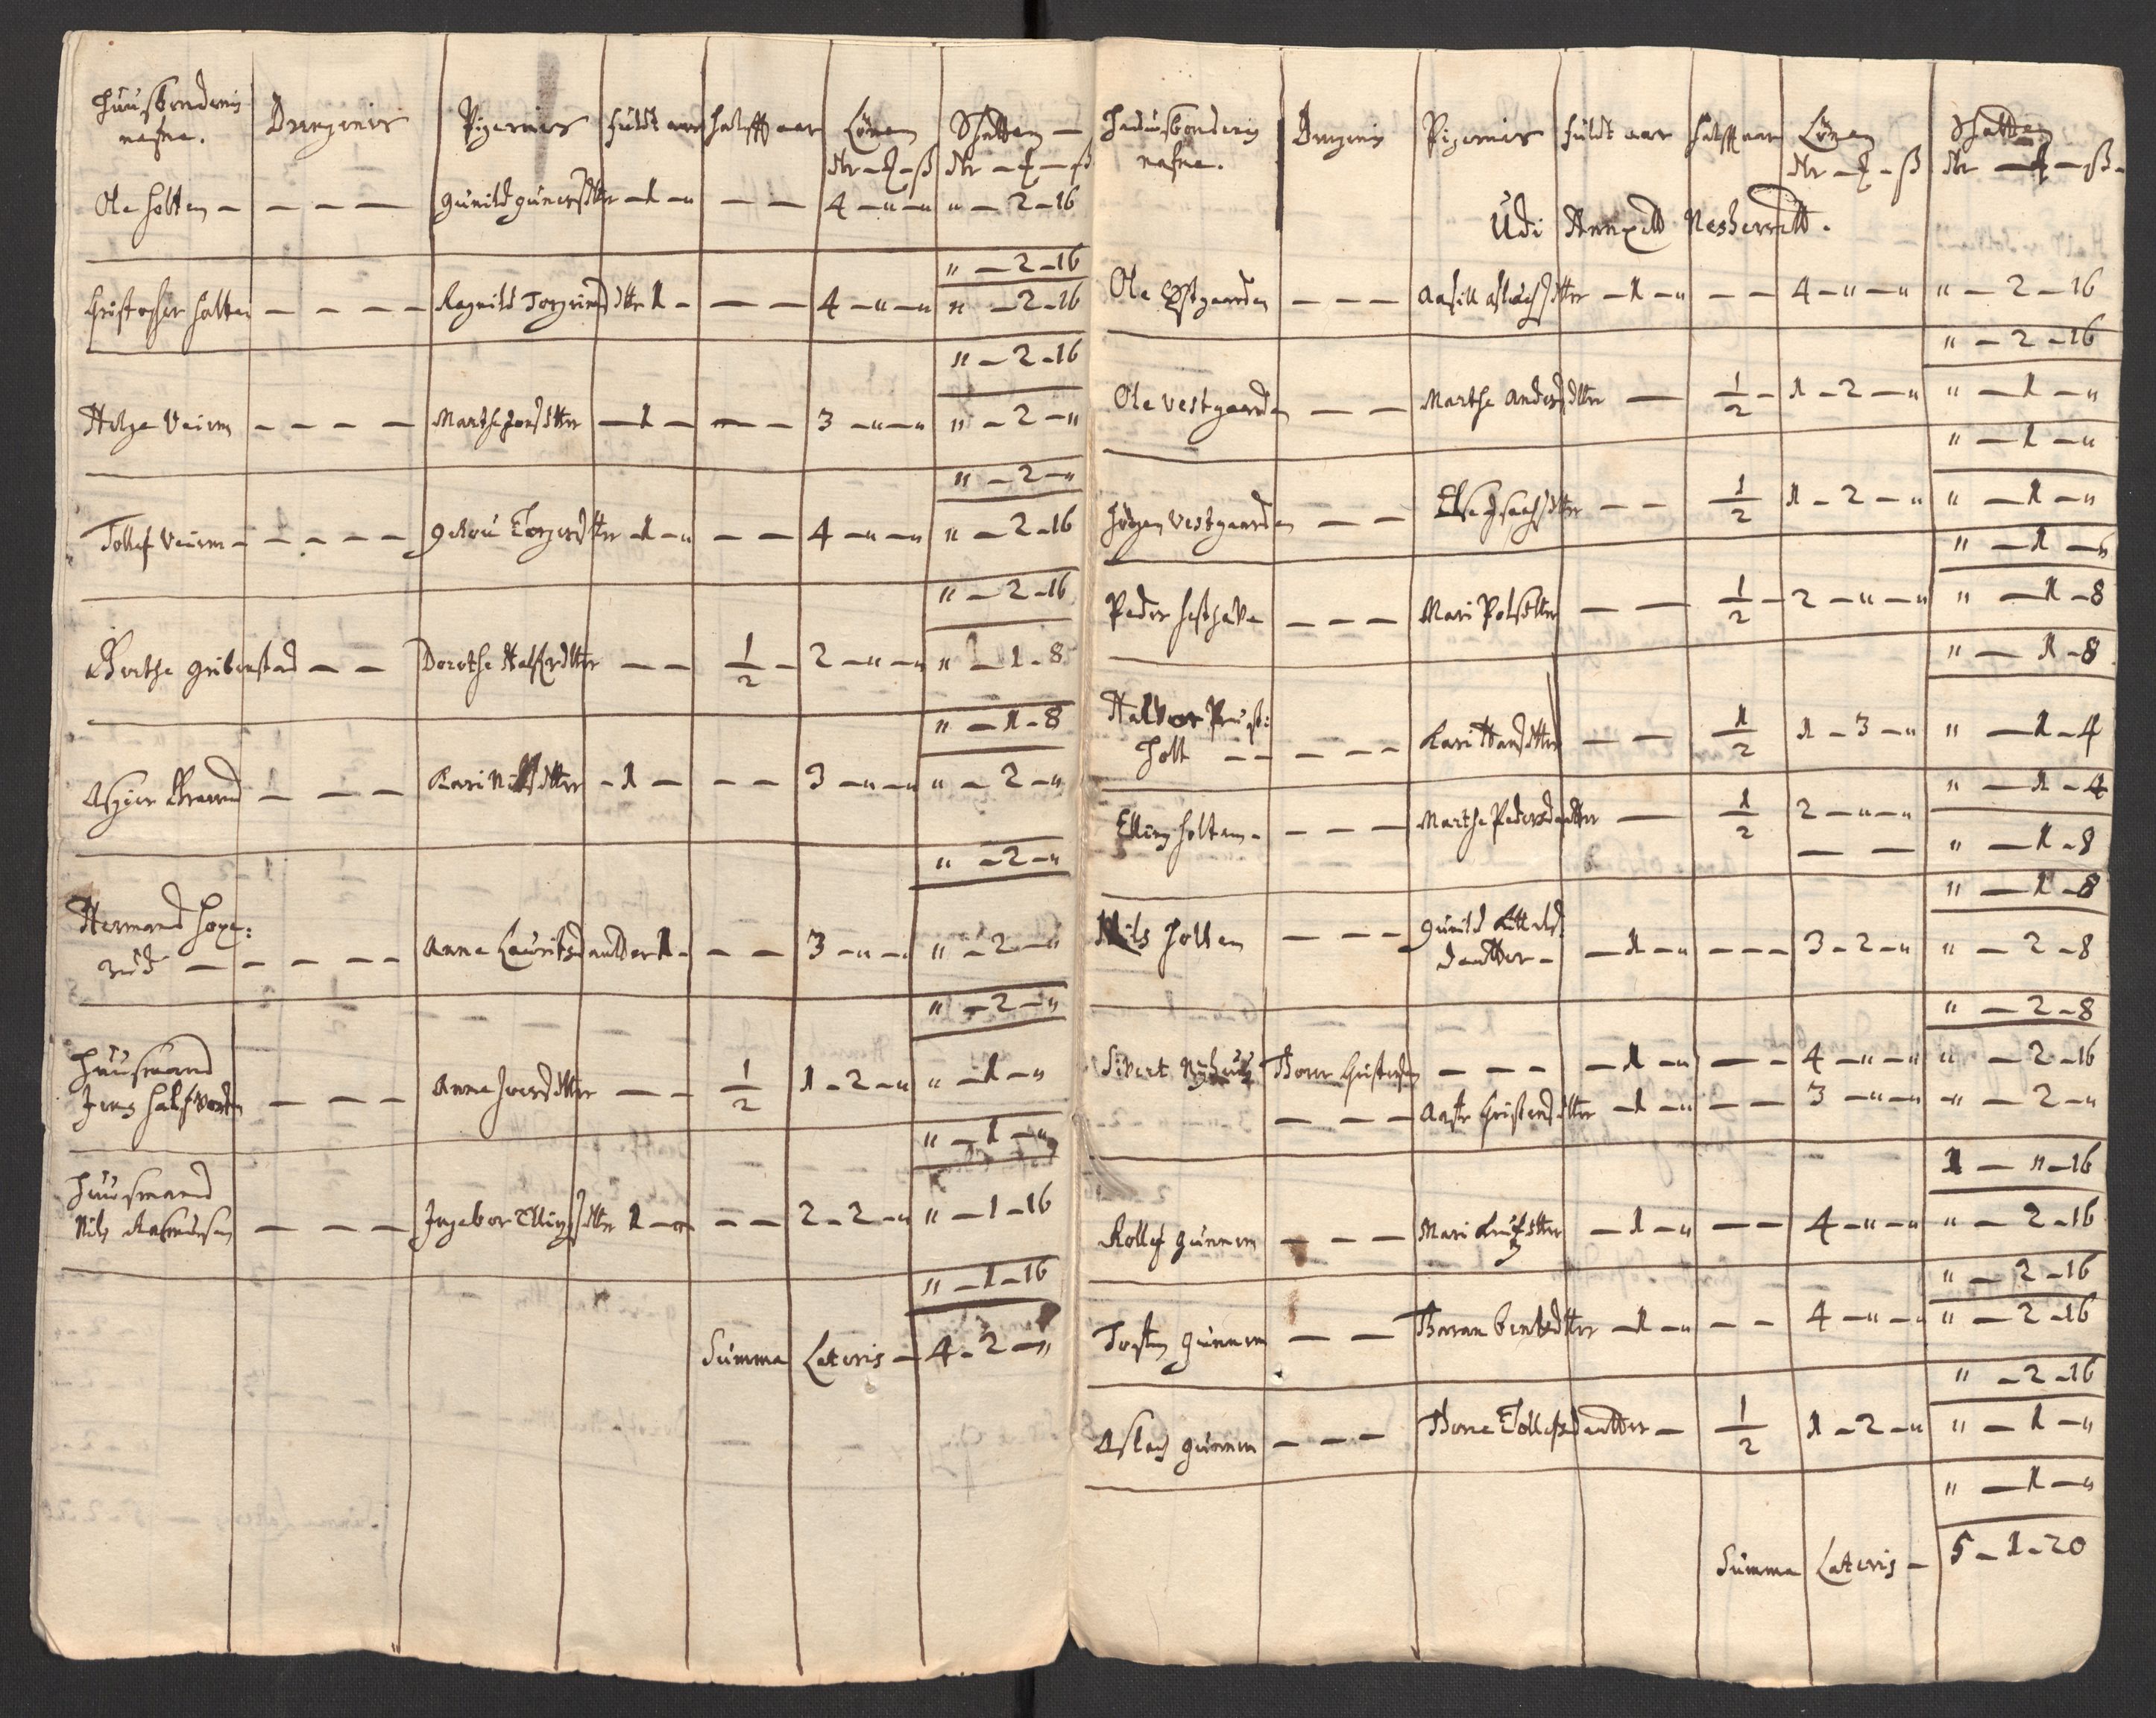 Huusbonderis | Drengenis | Pigernis | fuldt aar | halfft aar | Lönen | Shatten
nafne. | Dr - [ - ß | Dr - [ - ß
Ole Holten - | - - - | Gunild Gunersdtter | 1 - " | - - | 4 - " - " | " - 2 - 16
" - 2 - 16
Christopher Holten | - - - - | Ragnild Torgrimsdtter | 1 - | - - | 4 - " - " | " - 2 - 16
" - 2 - 16
Helge Veiern | - - - - | Marthe Jonsdtter | 1 - | - - | 3 - " - " | " - 2 - "
" - 2 - "
Tollef Veiern - | - - - - | Torgersdtter | 1 - " | - - | 4 - " - " | " - 2 - 16
" - 2 - 16
Berthe Gribenstad | - - | Dorethe Halffordtter | - - | 1/2 - | 2 - " - " | " - 1 - 8
" - 1 - 8
Asgier | - - - | Kari Nilsdtter | - 1 - | - - | 3 - " - " | " - 2 - "
" - 2 - "
Hermand Hoye:
rud - | - - - - | Anne Lauritzdautter | 1 - | - - | 3 - " - " | " - 2 - "
" - 2 - "
Huusmand
Jens Halfvorsen | - - - | Anne Iversdtter | - - | 1/2 | 1 - 2 - " | " - 1 - "
" - 1 - "
Huusmand
Nils Rasmusen | - - - | Ingebor Ellingsdtter | 1 - " | - - | 2 - 2 - " | " - 1 - 16
" - 1 - 16
Summa Lateris - 4 - 2 - "
Huusbonderis | Drengenis | Pigernis | fuldt aar | halfft aar | Lönen | Shatten
nafne. | Dr - [ - ß | Dr - [ - ß -
Udi Annexett Nesherrett.
Ole Östgaarden | - - - | Aasill Aslachsdtter | - 1 - " | - - | 4 - " - " | " - 2 - 16
" - 2 - 16
Ole Vestgaarden | - - | Marthe Andersdtter | - | 1/2 - | 1 - 2 - " | " - 1 - "
" - 1 - "
Jörgen Vestgaarden | - - | Else Isachsdtter | - - | 1/2 | 1 - 2 - " | " - 1 - "
" - 1 - "
Peder Hesthave | - - - | Mari Polsdtter | - - | 1/2 - | 2 - " - " | " - 1 - 8
" - 1 - 8
Halvor Prust:
Holt - - | - - - | Kari Hansdtter | - - | 1/2 | 1 - 3 - " | " - 1 - 4
" - 1 - 4
Elling Holten - | - - - | Marthe Pedersdautter | - | 1/2 | 2 - " - "
- - | " - 1 - 8
" - 1 - 8
Nils Holten | - - - | Gunild Kittelsd
dautter - | - 1 - " | - - - | 3 - 2 - " | " - 2 - 8
" - 2 - 8
Sivert Nyhuus | Thore Christensen | - - - | - 1 - " | - - | 4 - " - " | " - 2 - 16
- - - | Christensdtter | - 1 - " | - - | 3 - " - " | " - 2 - "
1 - " - 16
Rollef Gunnem | - - - | Mari Knutzdtter | - 1 - " | - - | 4 - " - " | " - 2 - 16
" - 2 - 16
Tosten Gunnem | - - | Thoran Bentsdtter | - 1 - " | - - | 4 - " - " | " - 2 - 16
" - 2 - 16
Aslach Gunnem | - - - | Thore Tollefsdautter - | 1/2 | 1 - 2 - " | " - 1 - "
" - 1 - "
Summa Lateris - 5 - 1 - 20